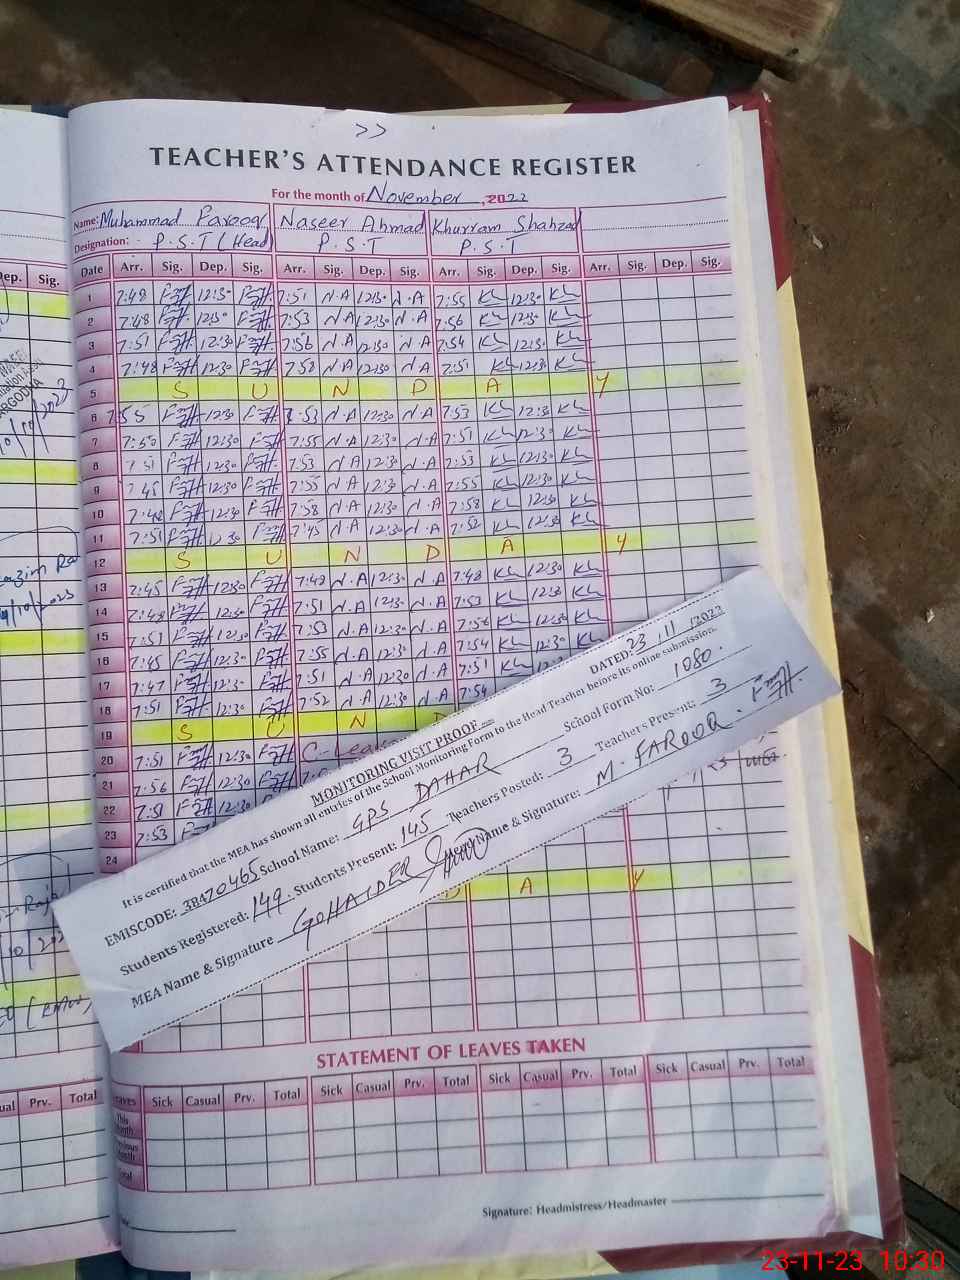 >>
TEACHER'S ATTENDANCE REGISTER
For the month of November, 2022
Name: Muhammad Farooq Naseer Ahmad Khurram Shahzad
Designation: P.S.T (Head) P.S.T P.S.T
Date Arr. Sig. Dep. Sig. Arr. Sig. Dep. Sig. Arr. Sig. Dep. Sig. Arr. Sig. Dep. Sig.
1 7:48 12:30 7:51 N.A 12:30 N.A 7:55 Kh 12:30 Kh
2 7:48 12:30 7:53 N.A 12:30 N.A 7:56 Kh 12:30 Kh
3 7:51 12:30 7:56 N.A 12:30 N.A 7:54 Kh 12:30 Kh
4 7:48 12:30 7:58 N.A 12:30 N.A 7:51 Kh 12:30 Kh
5 S U N D A Y
6 7:55 12:30 7:53 N.A 12:30 N.A 7:53 Kh 12:30 Kh
7 7:50 12:30 7:55 N.A 12:30 N.A 7:51 Kh 12:30 Kh
8 7:51 12:30 7:53 N.A 12:30 N.A 7:53 Kh 12:30 Kh
9 7:45 12:30 7:55 N.A 12:30 N.A 7:55 Kh 12:30 Kh
10 7:48 12:30 7:58 N.A 12:30 N.A 7:58 Kh 12:30 Kh
11 7:51 12:30 7:45 N.A 12:30 N.A 7:52 Kh 12:30 Kh
12 S U N D A Y
13 7:45 12:30 7:48 N.A 12:30 N.A 7:48 Kh 12:30 Kh
14 7:48 12:30 7:51 N.A 12:30 N.A 7:53 Kh 12:30 Kh
15 7:51 12:30 7:53 N.A 12:30 N.A 7:56 Kh 12:30 Kh
16 7:45 12:30 7:55 N.A 12:30 N.A 7:54 Kh 12:30 Kh
17 7:47 12:30 7:51 N.A 12:30 N.A 7:51 Kh
18 7:51 12:30 7:52 N.A 12:30 N.A 7:54
19 S U N D
20 7:51 12:30 C-Leave
21 7:56 12:30
22 7:51 12:30
23 7:53
24
A Y
MONITORING VISIT PROOF
DATED: 23, 11, 2023
It is certified that the MEA has shown all entries of the School Monitoring Form to the Head Teacher before its online submission.
EMISCODE: 38470465 School Name: GPS DAHAR School Form No: 1080.
Students Registered: 149. Students Present: 145 Teachers Posted: 3 Teachers Present: 3
MEA Name & Signature GOHAIDER Name & Signature: M. FAROOQ.
STATEMENT OF LEAVES TAKEN
Leaves Sick Casual Prv. Total Sick Casual Prv. Total Sick Casual Prv. Total Sick Casual Prv. Total
This Month
Previous Month
Total
Signature: Headmistress/Headmaster
Dep. Sig.
SARGODHA
10/10/2023
Prv. Total
23-11-23 10:30